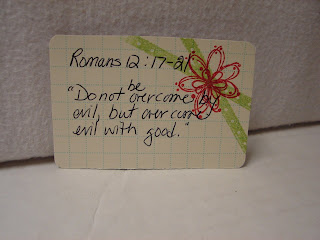 Romans 12:17-21
"Do not be overcome by
evil, but overcome
evil with good."